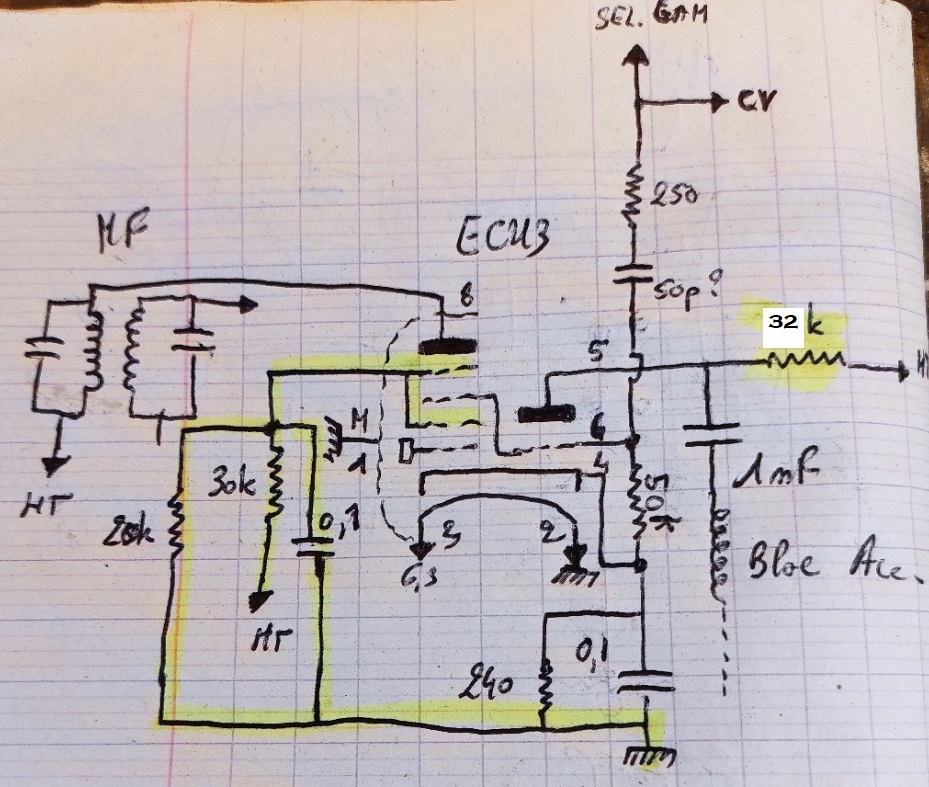 SEL. GAM
CV
250
MF
ECH3
50p?
8
32 k
5
HT
M
6
1
4
30k
50k
1nF
20k
0,1
3
2
6,3
Bloc Acc.
HT
0,1
240